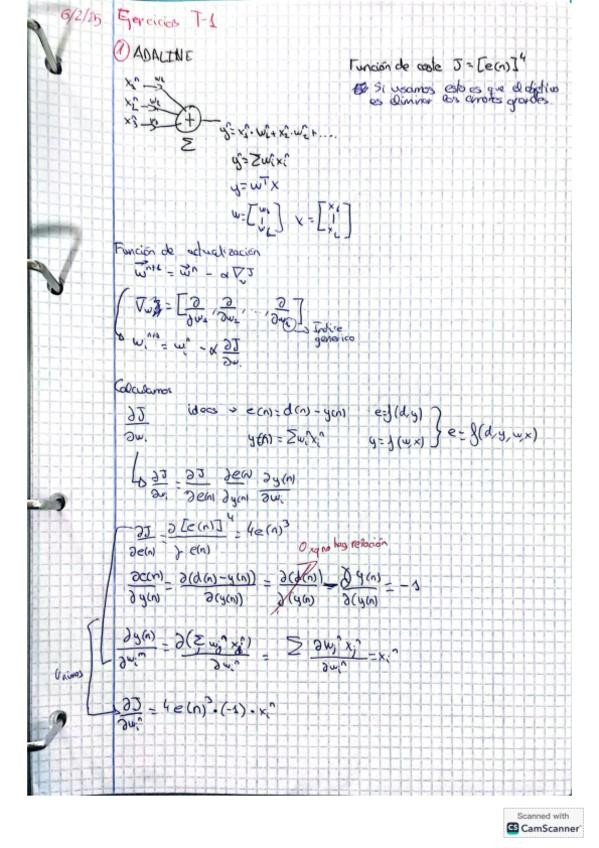 6/2/25 Ejercicios T-1
① ADALINE
Función de coste J = [e(n)]^4
Si usamos esto es que el objetivo
es eliminar los errores grandes
x₁ⁿ w₁
x₂ⁿ w₂
x₃ⁿ
+
Σ
yⁿ = x₁ⁿ·w₁ⁿ + x₂ⁿ·w₂ⁿ + ....
yⁿ = Σwᵢⁿxᵢⁿ
y = wᵀx
w = [w₁ | w_L] x = [x₁ | x_L]
Función de actualización
w⃗ⁿ⁺¹ = w⃗ⁿ - α∇_w J
∇_w J = [∂/∂w₁, ∂/∂w₂, ..., ∂/∂w_L] → Índice
generico
wᵢⁿ⁺¹ = wᵢⁿ - α ∂J/∂wᵢ
Calculamos
∂J/∂wᵢ ideas → e(n) = d(n) - y(n) e = f(d,y)
y(n) = Σwᵢⁿxᵢⁿ y = f(w,x) } e = f(d,y,w,x)
∂J/∂wᵢ = ∂J/∂e(n) ∂e(n)/∂y(n) ∂y(n)/∂wᵢ
∂J/∂e(n) = ∂[e(n)]^4/∂e(n) = 4e(n)³
0 xq no hay relación
∂e(n)/∂y(n) = ∂(d(n)-y(n))/∂(y(n)) = ∂(d(n))/∂(y(n)) - ∂y(n)/∂(y(n)) = -1
∂y(n)/∂wᵢⁿ = ∂(Σ wⱼⁿ xⱼⁿ)/∂wᵢⁿ = Σ ∂wⱼⁿxⱼⁿ/∂wᵢⁿ = xᵢⁿ
Unimos
∂J/∂wᵢⁿ = 4e(n)³·(-1)·xᵢⁿ
Scanned with
CS CamScanner